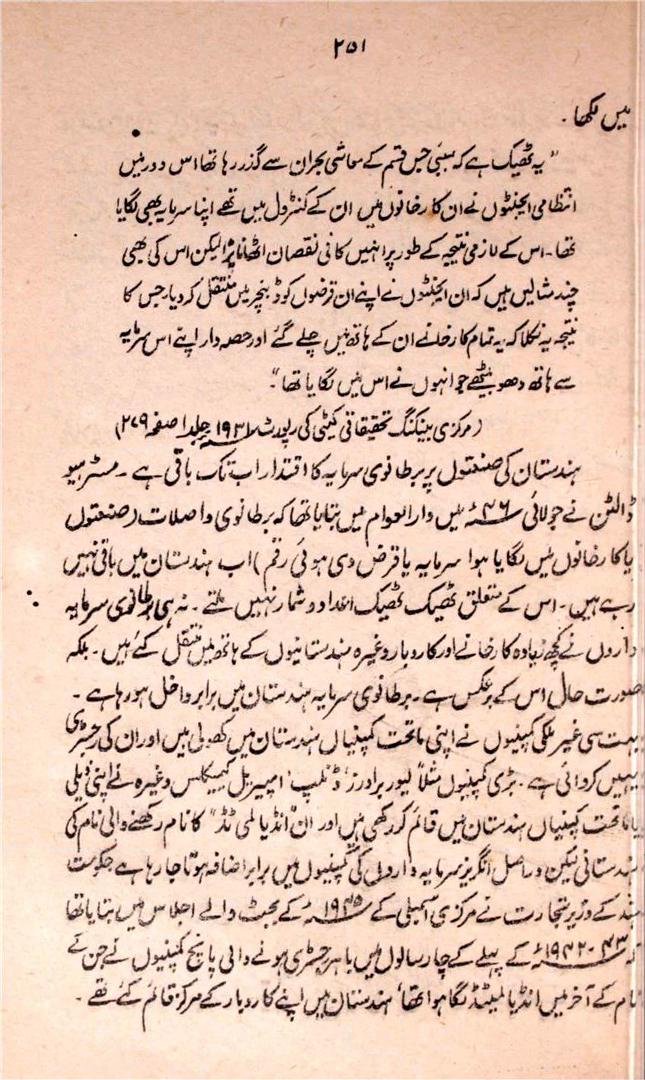 ۲۵۱
میں لکھا۔
"یہ ٹھیک ہے کہ بمبئی جس قسم کے معاشی بحران سے گذر رہا تھا اس دور میں
انتظامی ایجنٹوں نے ان کارخانوں میں ان کے کنٹرول میں تھے اپنا سرمایہ بھی لگایا
تھا۔ اس کے لازمی نتیجہ کے طور پر انہیں کافی نقصان اٹھانا پڑا لیکن اس کی بھی
چند مثالیں ہیں کہ ان ایجنٹوں نے اپنے ان قرضوں کو ڈبنچر میں منتقل کر دیا۔ جس کا
نتیجہ یہ نکلا کہ یہ تمام کارخانے ان کے ہاتھ میں چلے گئے اور حصہ دار اپنے اس سرمایہ
سے ہاتھ دھو بیٹھے جو انہوں نے اس میں لگایا تھا"۔
(مرکزی بینکنگ تحقیقاتی کمیٹی کی رپورٹ ۱۹۳۱ جلد ۱ صفحہ ۲۷۹)
ہندستان کی صنعتوں پر برطانوی سرمایہ کا اقتدار اب تک باقی ہے۔ مسٹر ہیو
ڈالٹن نے جولائی ۴۶ء میں دارالعوام میں بتایا تھا کہ برطانوی واصلات (صنعتوں
یا کارخانوں میں لگایا ہوا سرمایہ یا قرض دی ہوئی رقم) اب ہندستان میں باقی نہیں
رہے ہیں۔ اس کے متعلق ٹھیک ٹھیک اعداد و شمار نہیں ملتے۔ نہ ہی برطانوی سرمایہ
داروں نے کچھ زیادہ کارخانے اور کاروبار وغیرہ ہندستانیوں کے ہاتھ میں منتقل کئے ہیں۔ بلکہ
صورت حال اس کے برعکس ہے۔ برطانوی سرمایہ ہندستان میں برابر داخل ہو رہا ہے۔
بہت سی غیر ملکی کمپنیوں نے اپنی ماتحت کمپنیاں ہندستان میں کھولی ہیں اور ان کی رجسٹری
یہیں کروائی ہے۔ بڑی کمپنیوں مثلاً لیور برادرز، ڈنلپ، امپیریل کیمیکلس وغیرہ نے اپنی ذیلی
یا ماتحت کمپنیاں ہندستان میں قائم کر رکھی ہیں اور ان "انڈیا لمی ٹڈ" کا نام رکھنے والی نام کی
ہندستانی لیکن دراصل انگریز سرمایہ داروں کی کمپنیوں میں برابر اضافہ ہوتا جا رہا ہے حکومت
ہند کے وزیر تجارت نے مرکزی اسمبلی کے ۱۹۴۵ء کے بجٹ والے اجلاس میں بتایا تھا
کہ ۴۳-۱۹۴۲ء کے پہلے کے چار سالوں میں باہر رجسٹری ہونے والی پانچ کمپنیوں نے جن کے
نام کے آخر میں انڈیا لمیٹڈ لگا ہوا تھا، ہندستان میں اپنے کاروبار کے مرکز قائم کئے تھے۔